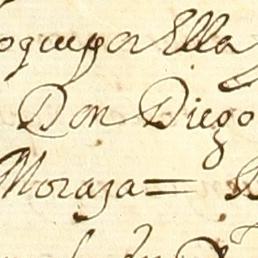 oqueporella
Don Diego
Moraza=